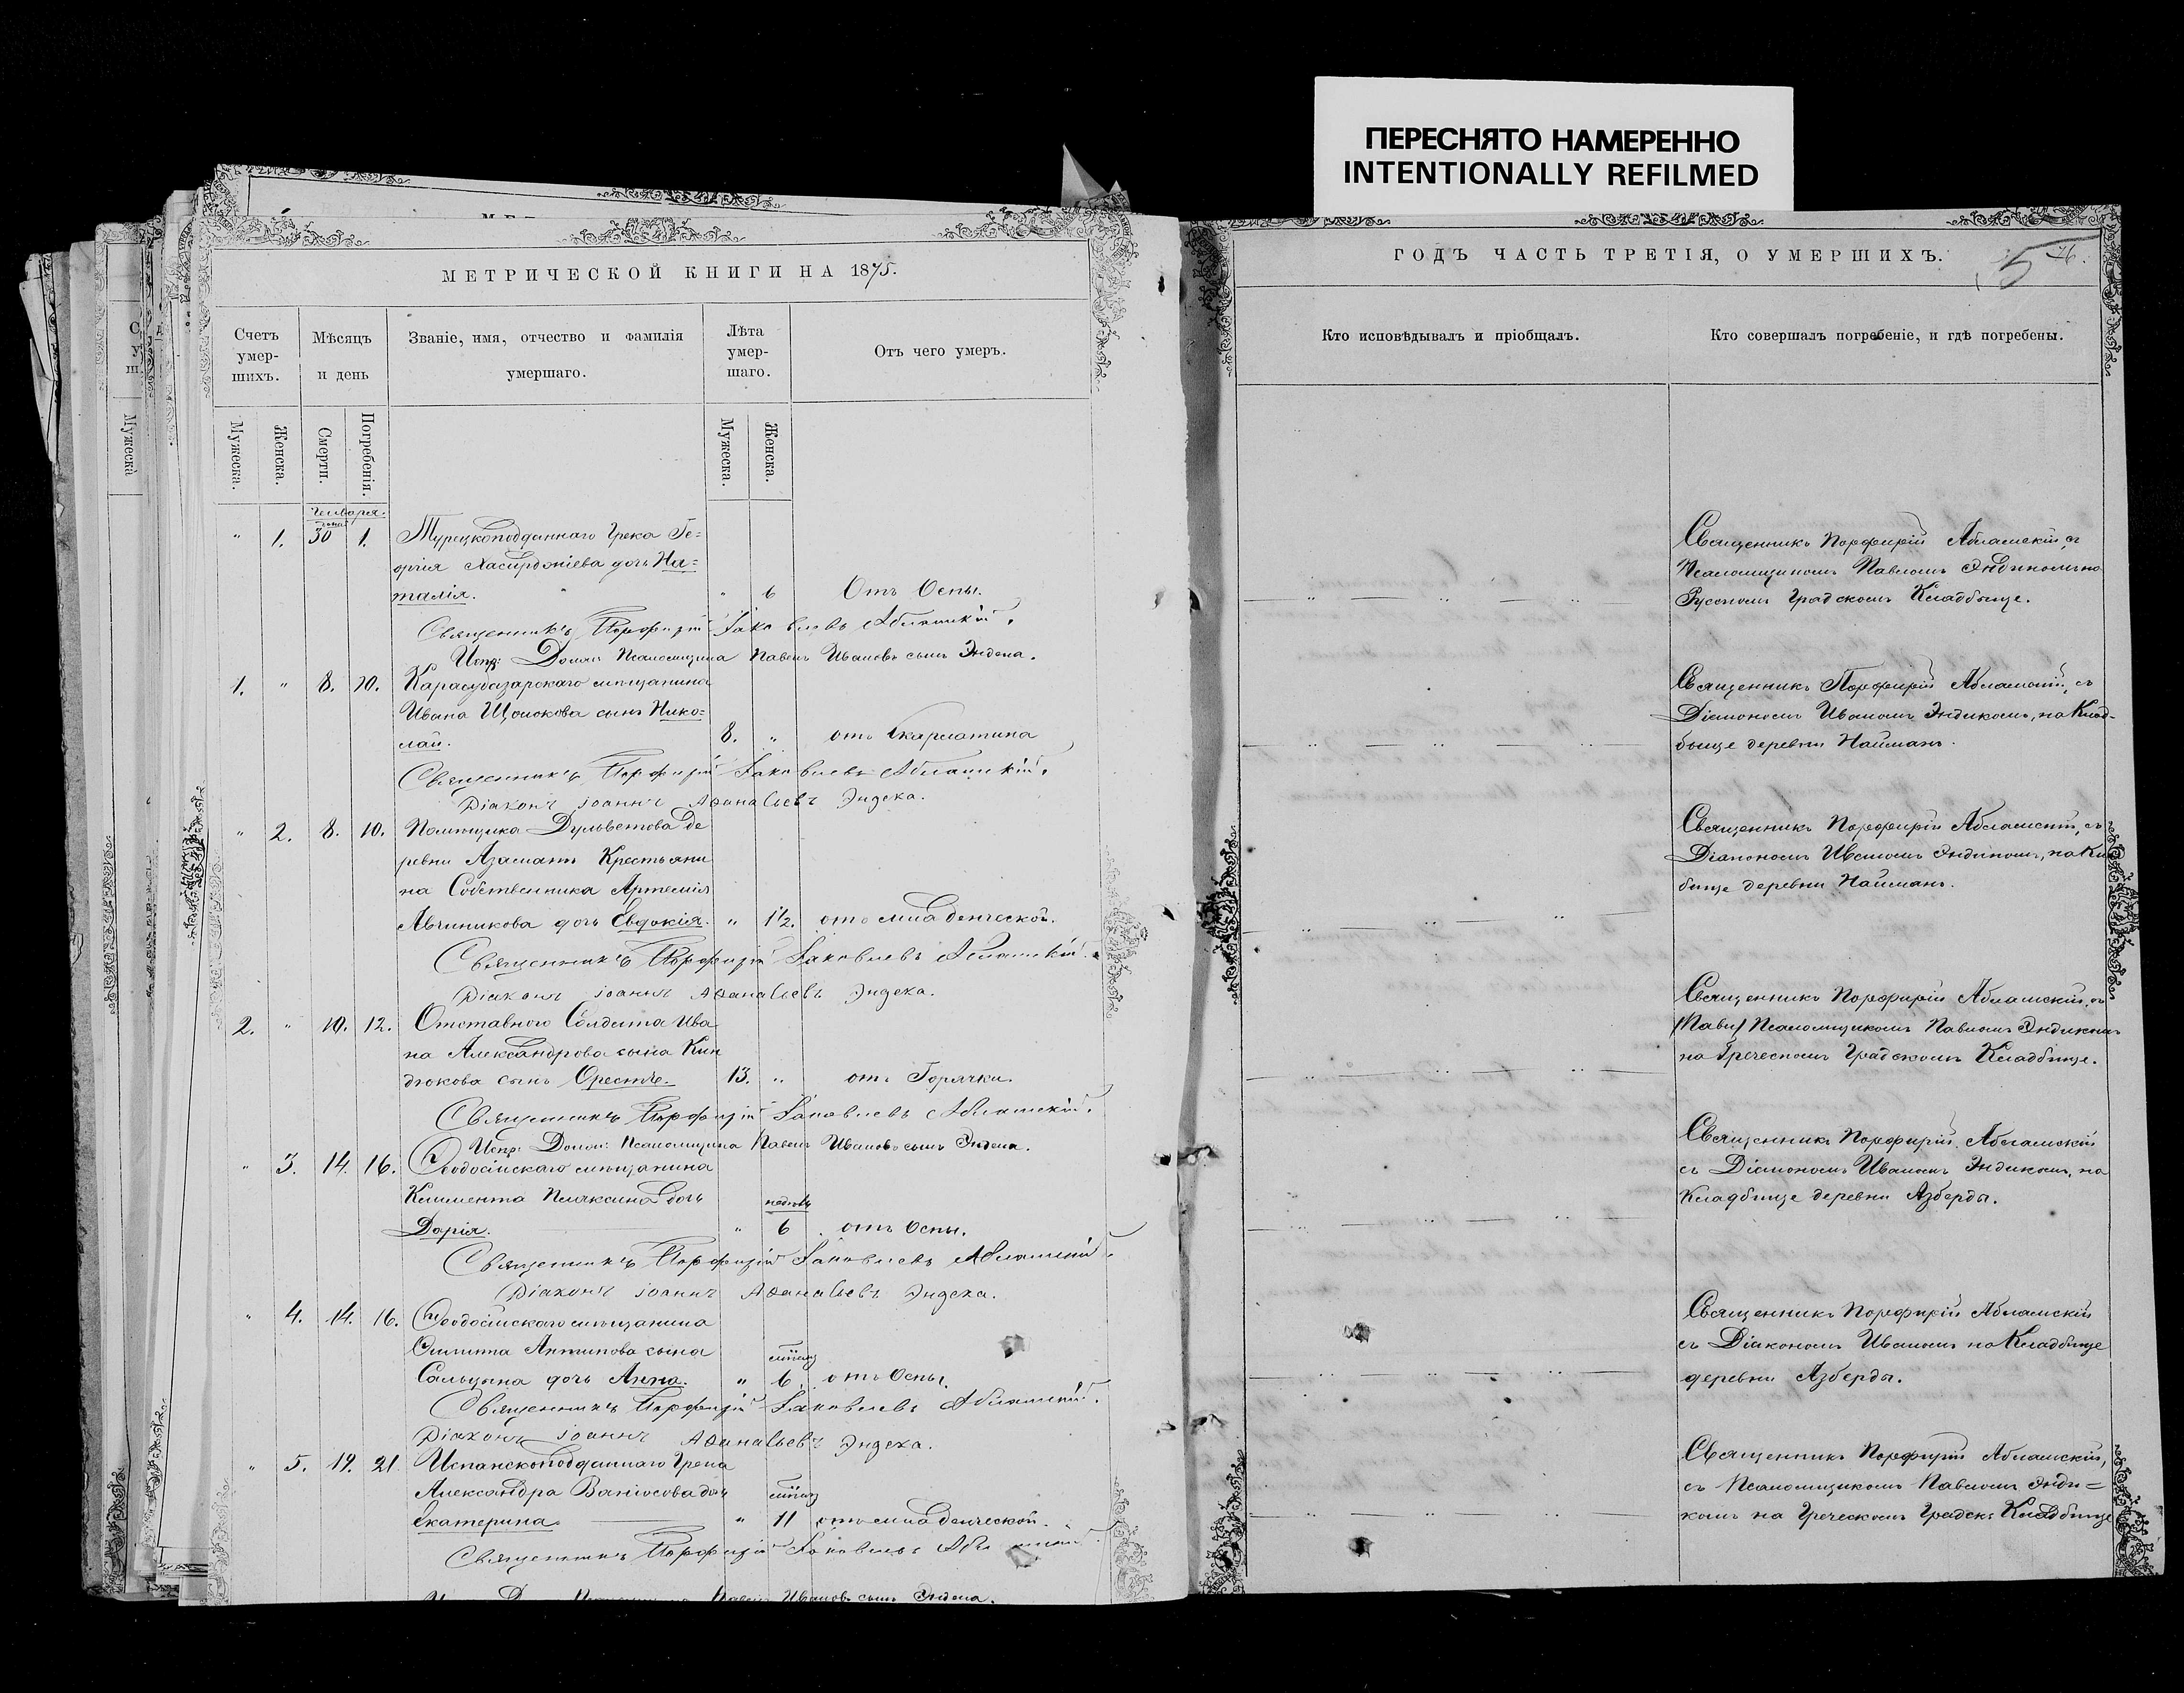 ПЕРЕСНЯТО НАМЕРЕННО
INTENTIONALLY REFILMED
МЕТРИЧЕСКОЙ КНИГИ НА 1875.
Счетъ умер-шихъ.
Мѣсяцъ и день
Званіе, имя, отчество и фамилія умершаго.
Лѣта умер-шаго.
Отъ чего умеръ.
Мужеска.
Женска.
Смерти.
Погребенія.
Мужеска.
Женска.
Января.
" 1. 30 1. Турецкоподданнаго Грека Ге=
оргія дочь На=
талія. " 6 Отъ Оспы.
Священникъ Порфирій Іаковлевъ Абламскій.
Испр: Должн: Псаломщика Павелъ Ивановъ сынъ Эндека.
1. " 8. 10. Карасубазарскаго мѣщанина
Ивана сынъ Нико=
лай. 8. " отъ Скарлатина
Священникъ Порфирій Іаковлевъ Абламскій.
Діаконъ Іоаннъ Аѳанасьевъ Эндека.
" 2. 8. 10. Помѣщика Дульветова де
ревни Азаматъ Крестьяни
на Собственника Артемія
дочь Евдокія. " 1½. отъ младенческой.
Священникъ Порфирій Іаковлевъ Абламскій.
Діаконъ Іоаннъ Аѳанасьевъ Эндека.
2. " 10. 12. Отставного Солдата Ива
на Александрова сына Кин
дюкова сынъ Орестъ. 13. " отъ Горячки.
Священникъ Порфирій Іаковлевъ Абламскій.
Испр: Должн: Псаломщика Павелъ Ивановъ сынъ Эндека.
" 3. 14. 16. Ѳеодосійскаго мѣщанина
Климента дочь недѣль
Дарія. " 6 отъ Оспы.
Священникъ Порфирій Іаковлевъ Абламскій.
Діаконъ Іоаннъ Аѳанасьевъ Эндека.
" 4. 14. 16. Ѳеодосійскаго мѣщанина
Антипова сына
дочь Анна. " 6. отъ Оспы.
Священникъ Порфирій Іаковлевъ Абламскій.
Діаконъ Іоаннъ Аѳанасьевъ Эндека.
" 5. 19. 21. Испанскоподданнаго Грека
Александра дочь
Екатерина " 11 отъ младенческой.
Священникъ Порфирій Іаковлевъ Абламскій.
Ивановъ сынъ Эндека.
ГОДЪ ЧАСТЬ ТРЕТІЯ, О УМЕРШИХЪ.
Кто исповѣдывалъ и пріобщалъ.
Кто совершалъ погребеніе, и гдѣ погребены.
Священникъ Порфирій Абламскій, съ
Псаломщикомъ Павломъ Эндекомъ на
Русскомъ Градскомъ Кладбище.
Священникъ Порфирій Абламскій, съ
Діакономъ Иваномъ Эндекомъ, на Клад-
бище деревни Найманъ.
Священникъ Порфирій Абламскій, съ
Діакономъ Иваномъ Эндекомъ, на Кла
бище деревни Найманъ.
Священникъ Порфирій Абламскій, съ
/Павл/ Псаломщикомъ Павломъ Эндекомъ
на Греческомъ Градскомъ Кладбище.
Священникъ Порфирій Абламскій
съ Діакономъ Иваномъ Эндекомъ, на
Кладбище деревни Азберды.
Священникъ Порфирій Абламскій
съ Діакономъ Иваномъ на Кладбище
деревни Азберды.
Священникъ Порфирій Абламскій,
съ Псаломщикомъ Павломъ Энде=
комъ на Греческомъ Градск: Кладбище